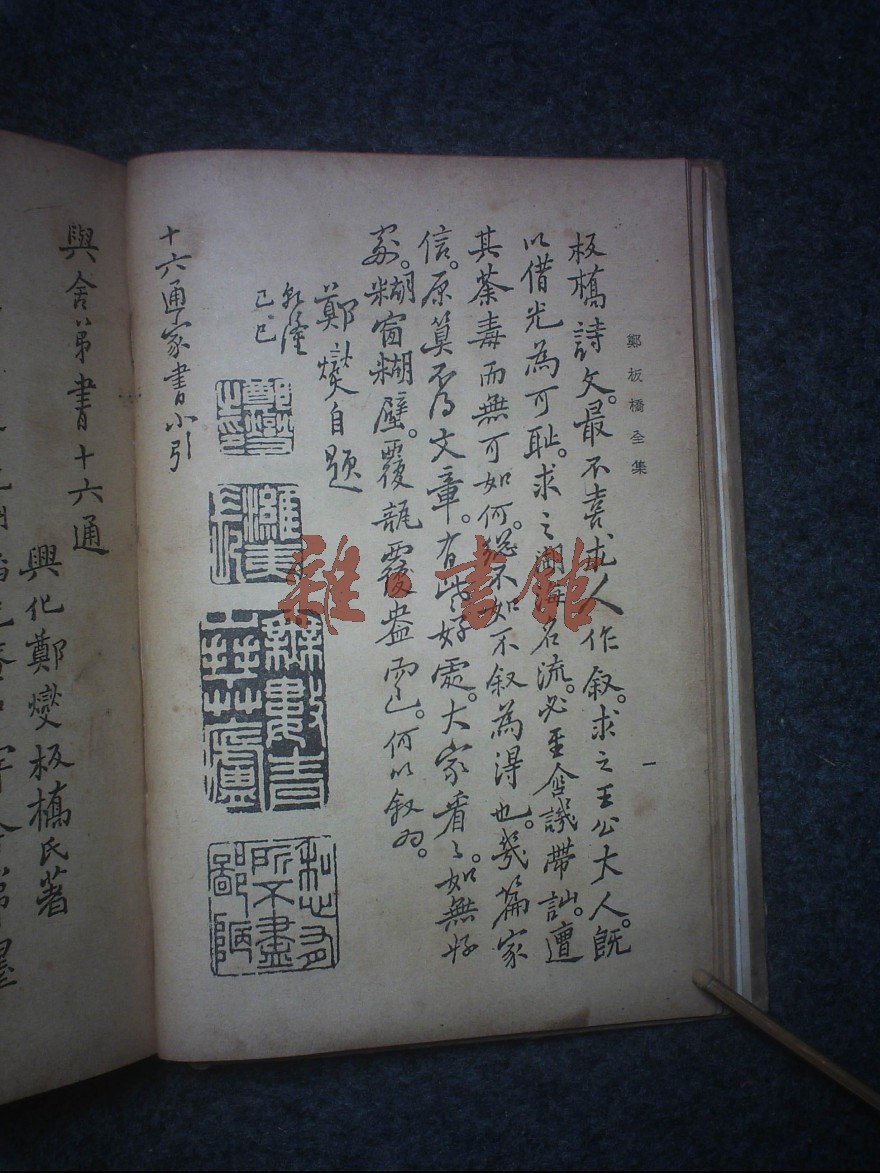 鄭板橋全集
一
板橋詩文。最不喜求人作叙。求之王公大人。既
以借光為可恥。求之湖海名流。必至含譏帶訕。遭
其荼毒而無可如何。總不如不叙為得也。幾篇家
信。原算不得文章。有些好處。大家看〻。如無好
處。糊窗糊壁。覆瓿覆盎而已。何以叙為。
鄭燮自題
乾隆
己巳
鄭燮之印
濰夷長
無數青山拜草廬
私心有所不盡鄙陋
十六通家書小引
雜·書館
與舍弟書十六通
興化鄭燮板橋氏著